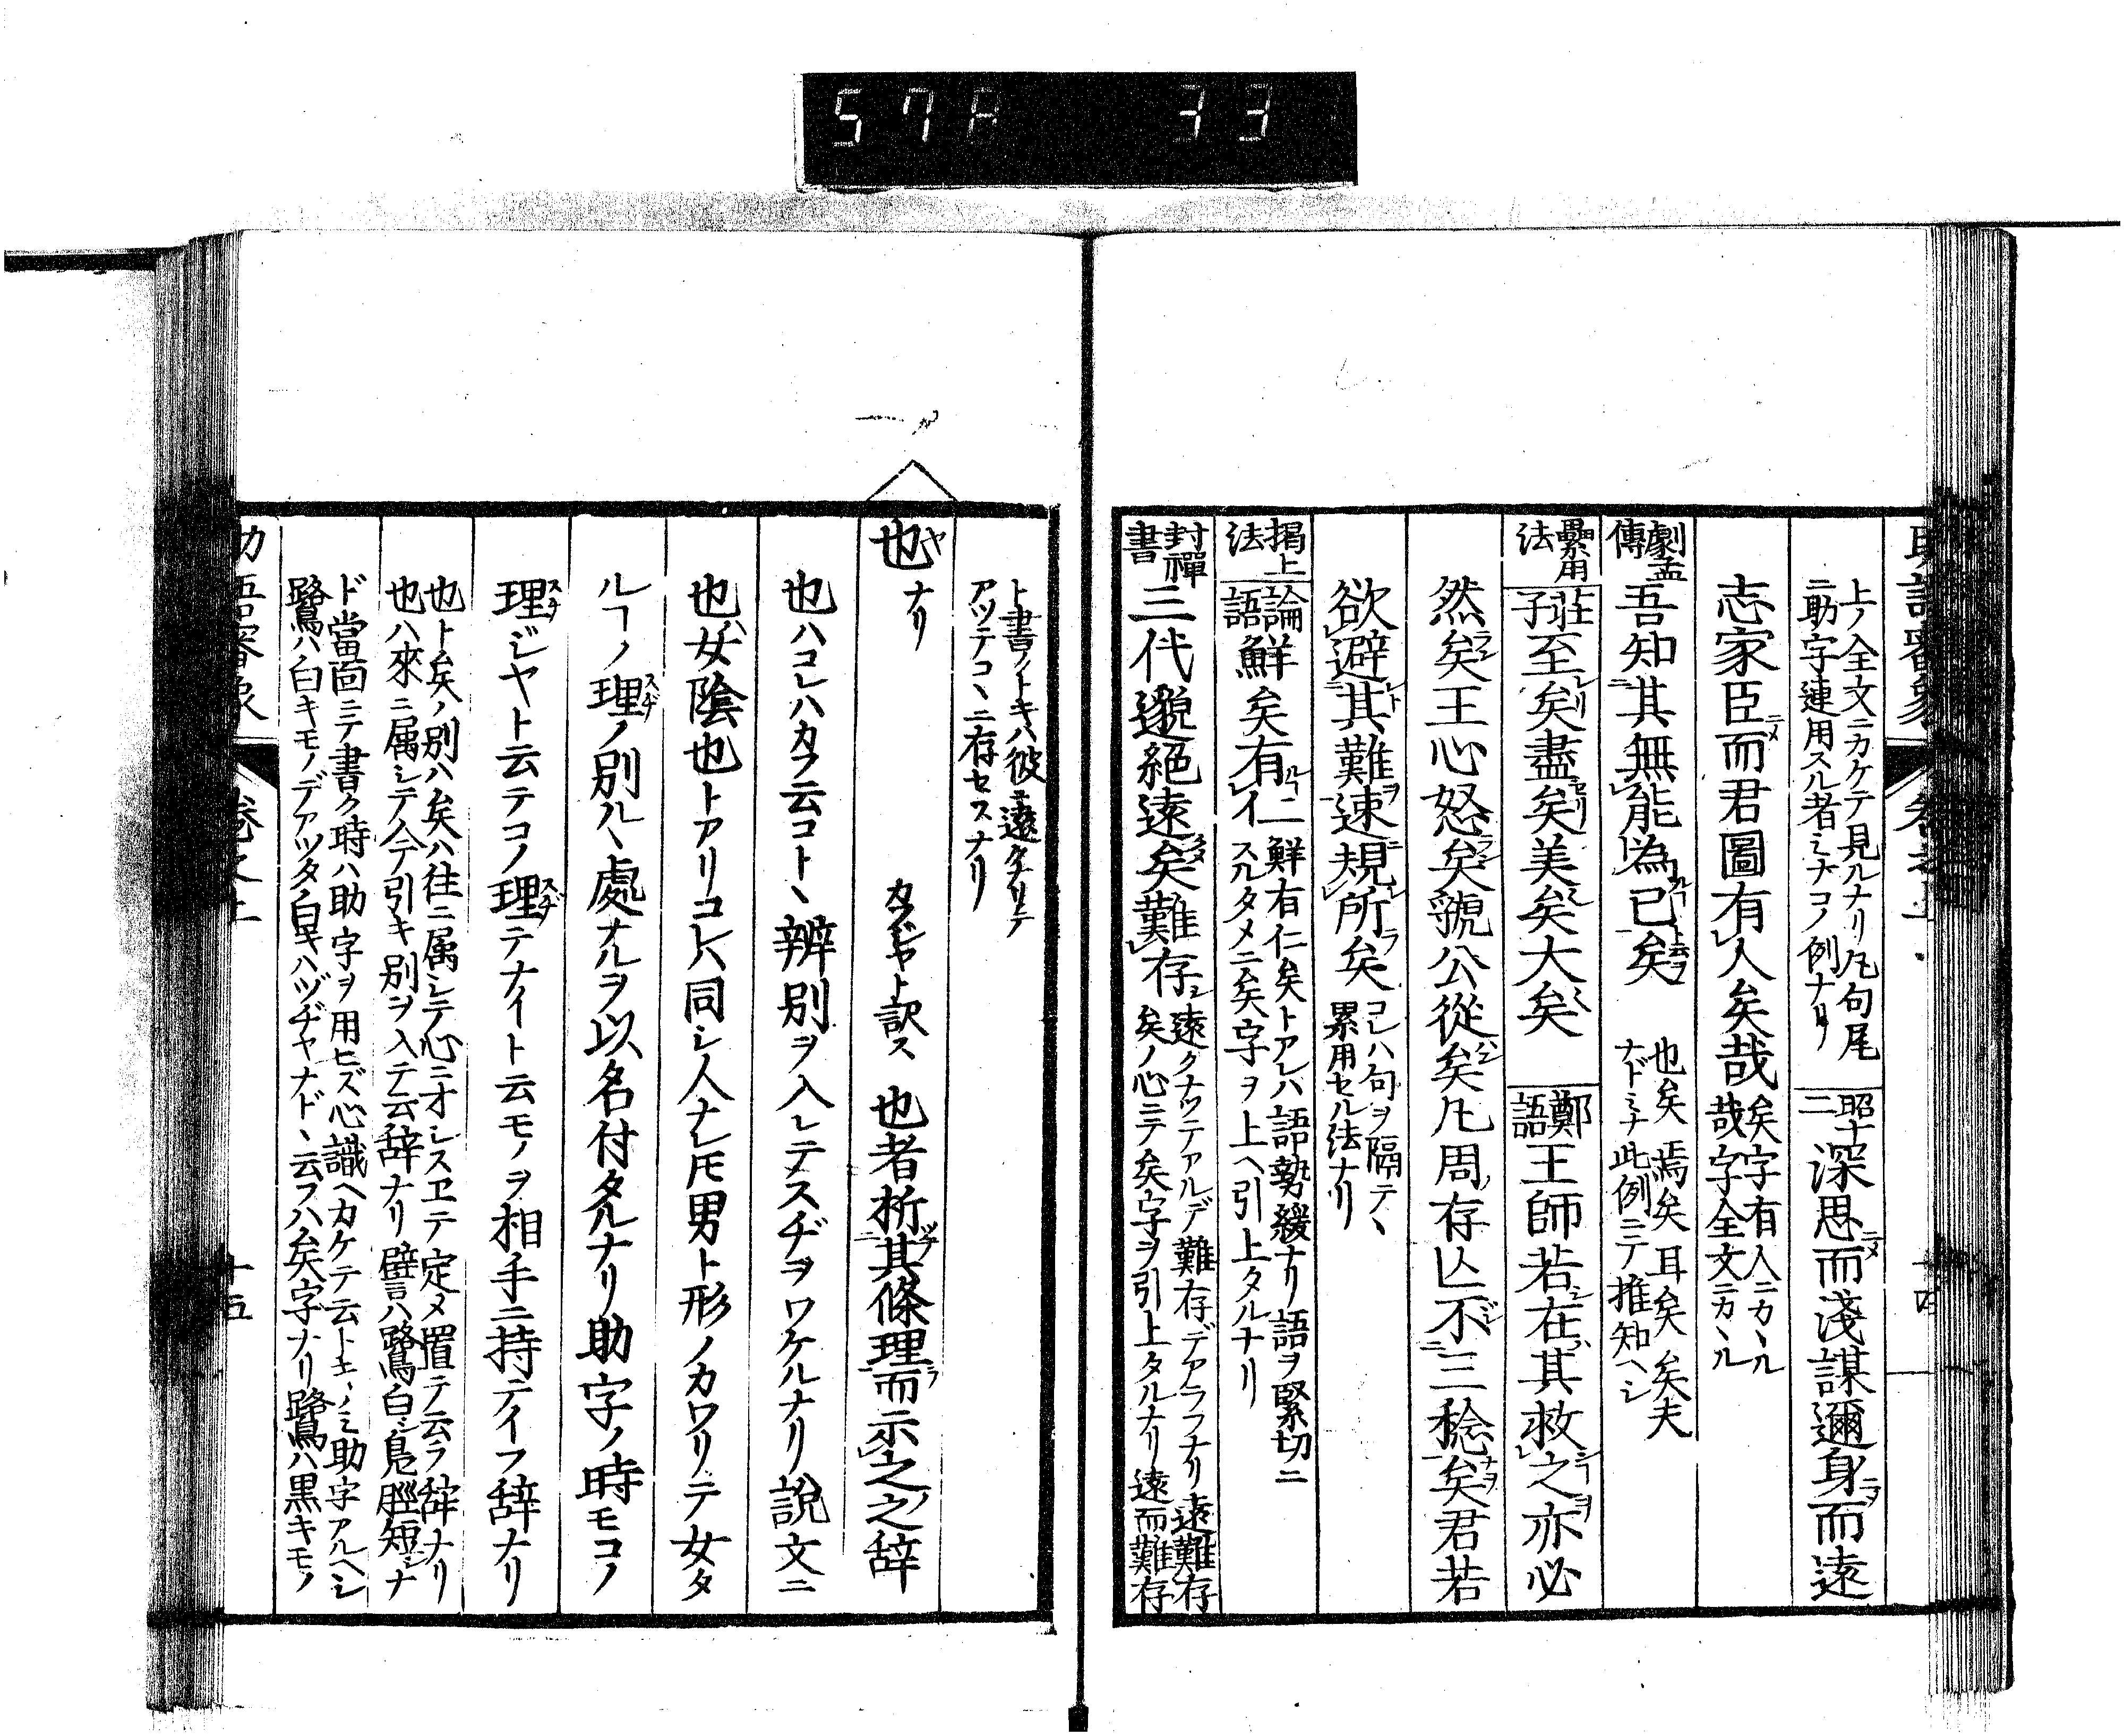 57A 33
上ノ全文ニカケテ見ルナリ凡句尾
ニ助字連用スル者ミナコノ例ナリ
昭十二
深思而淺謀邇身而遠
志家臣而君圖有人矣哉
矣字有人ニカヽル
哉字全文ニカヽル
劇孟傳
吾知其無能為已矣
也矣焉矣耳矣矣夫
ナドミナ此例ニテ推知ヘシ
累用法
荘子
至矣盡矣美矣大矣
鄭語
王師若在其救之亦必
然矣王心怒矣虢公從矣凡周存亾不三稔矣君若
欲避其難速規所矣
コレハ句ヲ隔テヽ
累用セル法ナリ
揭上法
論語
鮮矣有仁
鮮有仁矣トアレハ語勢緩ナリ語ヲ緊切ニ
スルタメニ矣字ヲ上ヘ引上タルナリ
封禪書
三代邈絕遠矣難存
遠クナツテアルデ難存デアラフナリ遠難存
矣ノ心ニテ矣字ヲ引上タルナリ遠而難存
ト書ノトキハ彼ニ遠クナリテ
アツテコヽニ存セスナリ
也
ヤ
ナリ
カフジヤト訳ス
也者析其條理而示之之辞
也ハコレハカフ云コトヽ辨別ヲ入レテスヂヲワケルナリ說文ニ
也女陰也トアリコレハ同シ人ナレモ男ト形ノカワリテ女タ
ルヿノ理ノ別ルヽ處ナルヲ以名付タルナリ助字ノ時モコノ
理ジヤト云テコノ理テナイト云モノヲ相手ニ持テイフ辞ナリ
也ト矣ノ別ハ矣ハ往ニ属シテ心ニオシスヱテ定メ置テ云フ辞ナリ
也ハ來ニ属シテ今テ引キ別ヲ入テ云辞ナリ譬ハ鷺白シ鳧脛短シナ
ド當面ニテ書ク時ハ助字ヲ用ヒズ心識ヘカケテ云トキノミ助字アルヘシ
鷺ハ白キモノデアツタ白キハヅヂヤナドヽ云フハ矣字ナリ鷺ハ黒キモノ
助語審象
卷之上
十五